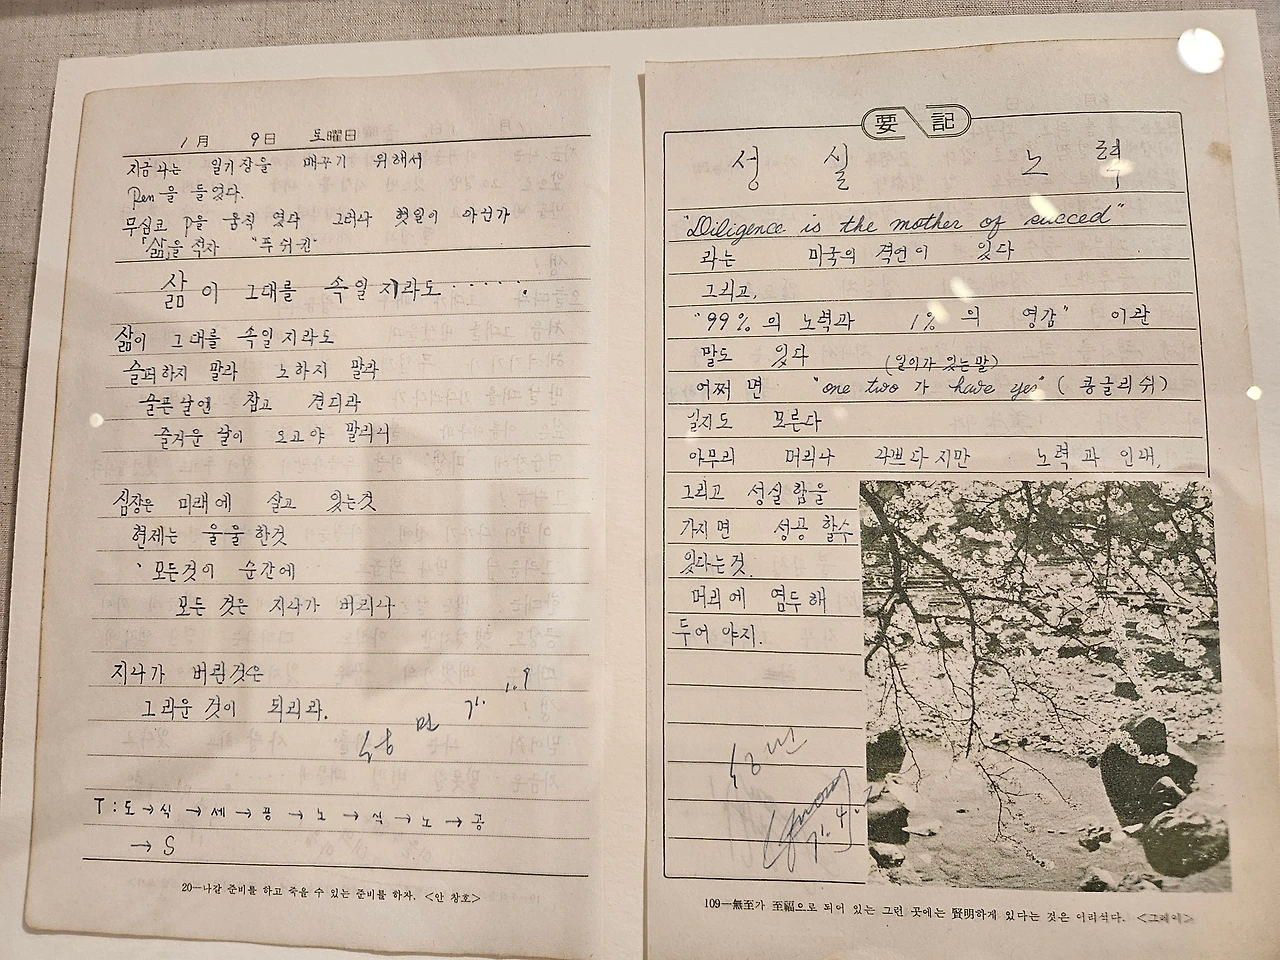 1月 9日 토曜日
지금 나는 일기장을 매꾸기 위해서
Pen을 들었다.
무심코 P을 움직였다 그러나 헛일이 아닌가
「삶」을 적자 "푸쉬킨"
삶이 그대를 속일지라도······
삶이 그대를 속일지라도
슬퍼하지 말라 노하지 말라
슬픈 날엔 참고 견디라
즐거운 날이 오고야 말리니
심장은 미래에 살고 있는것
현제는 울울한것
모든것이 순간에
모든 것은 지나가 버리나
지나가 버린것은
그리운 것이 되리라.
71. 1. 9
T:도→식→세→공→노→식→노→공
→S
20—나갈 준비를 하고 죽을 수 있는 준비를 하자. <안 창호>
要 記
성 실 노 력
"Diligence is the mother of succeed"
라는 미국의 격언이 있다
그리고,
"99%의 노력과 1%의 영감" 이란
말도 있다 (일이가 있는말)
어쩌면 "one two가 have yes" (콩글리쉬)
일지도 모른다
아무리 머리나 나쁘다지만 노력과 인내,
그리고 성실함을
가지면 성공 할수
있다는것.
머리에 염두해
두어야지.
71. 4.
109—無至가 至福으로 되어 있는 그런 곳에는 賢明하게 있다는 것은 어리석다. <그레이>